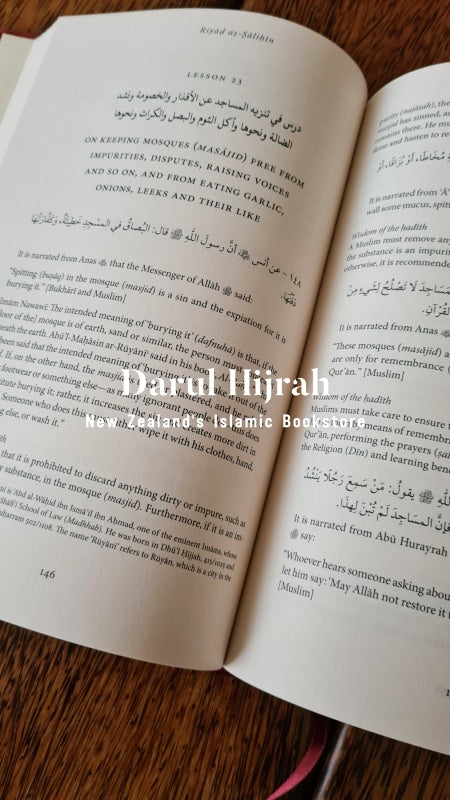 Riyāḍ aṣ-Ṣāliḥīn
LESSON 23
درس في تنزيه المساجد عن الأقذار والخصومة ونشد
الضالة ونحوها وأكل الثوم والبصل والكراث ونحوها
ON KEEPING MOSQUES (MASĀJID) FREE FROM
IMPURITIES, DISPUTES, RAISING VOICES
AND SO ON, AND FROM EATING GARLIC,
ONIONS, LEEKS AND THEIR LIKE
١٤٨ - عن أنس ﷺ أنَّ رسولَ اللَّهِ ﷺ قال: البُصاقُ في المسْجِدِ خَطِيئَةٌ، وَكَفَّارَتُهَا
دَفْنُهَا.
It is narrated from Anas that the Messenger of Allāh ﷺ said:
"Spitting (buṣāq) in the mosque (masjid) is a sin and the expiation for it is
burying it." [Bukhārī and Muslim]
Imām Nawawī: The intended meaning of 'burying it' (dafnuhā) is that, if the
[floor of the] mosque is of earth, sand or similar, the person must
neath the earth. Abū'l-Maḥāsin ar-Rūyānī said in his book
said that the intended meaning of 'burying it' is to take it out of the
d. If, on the other hand, the mosque
footwear or something else—as many ignorant people
titute burying it; rather, it increases the sin and creates more dirt in
Someone who does this must, after, wipe it with his clothes, hand,
g else, or wash it."
that it is prohibited to discard anything dirty or impure, such as
y substance, in the mosque (masjid). Furthermore, if it is an im-
ni is Abd al-Wāḥid ibn Ismā'īl ibn Aḥmad, one of the eminent Imāms, whose
Shāfi'ī School of Law (Madhhab). He was born in Dhū'l Ḥijjah, 415/1025 and
uḥarram 502/1108. The name 'Rūyānī' refers to Rūyān, which is a city in the
146
purity (najāsah), the
masjid has sinned, and
remains there. He mu
done and hasten to re
مُخَاطًا، أَوْ بُزَاقًا، أو
It is narrated from 'Ā'
wall some mucus, spitt
Wisdom of the ḥadīth
A Muslim must remove any
the substance is an impuri
otherwise, it is recommende
مَسَاجِدَ لَا تَصْلُحُ لِشَيْءٍ مِنْ
القُرْآنِ.
It is narrated from Anas
"These mosques (masājid) a
are only for remembrance (
Qur'ān." [Muslim]
Wisdom of the ḥadīth
Muslims must take care to ensure t
means of remembra
Qur'ān, performing the prayers (ṣal
the Religion (Dīn) and learning bene
ﷺ يقولُ: مَنْ سَمِعَ رَجُلًا يَنْشُدُ
فإنَّ المساجدَ لَمْ تُبْنَ لِهذَا.
It is narrated from Abū Hurayrah
ﷺ say:
"Whoever hears someone asking about
let him say: 'May Allāh not restore it t
[Muslim]
Darul Hijrah
New Zealand's Islamic Bookstore